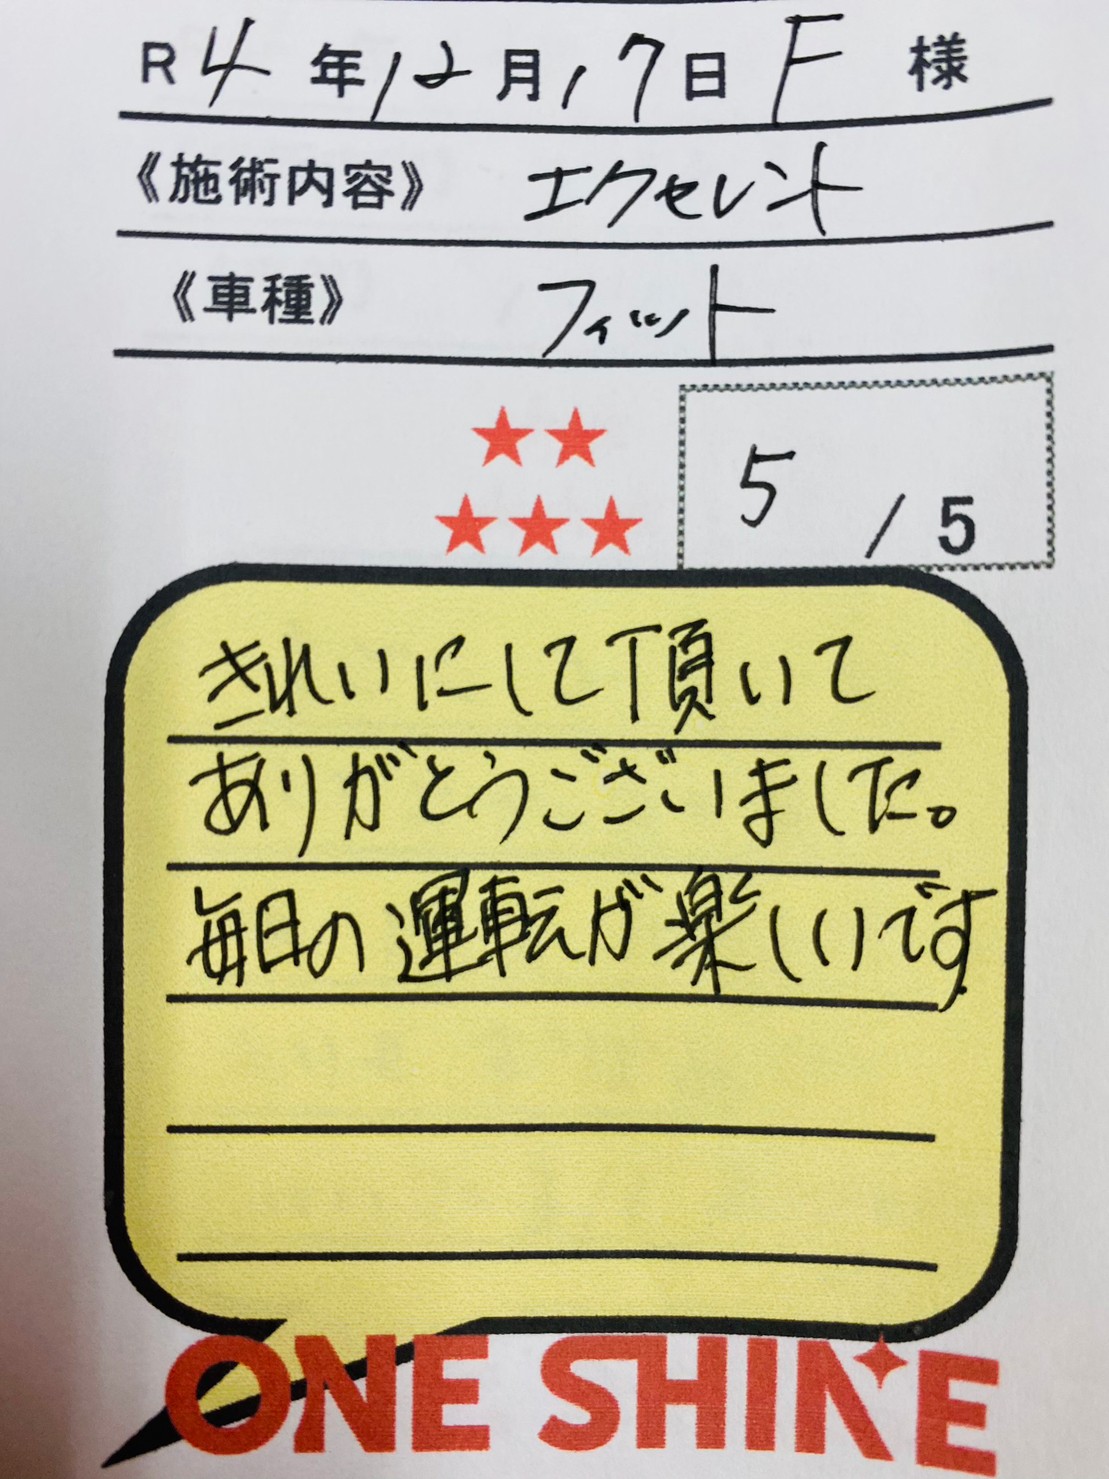 R4年12月17日 F 様
《施術内容》 エクセレント
《車種》 フィット
★★
★★★
5/5
きれいにして頂いて
ありがとうございました。
毎日の運転が楽しいです
ONE SHINE